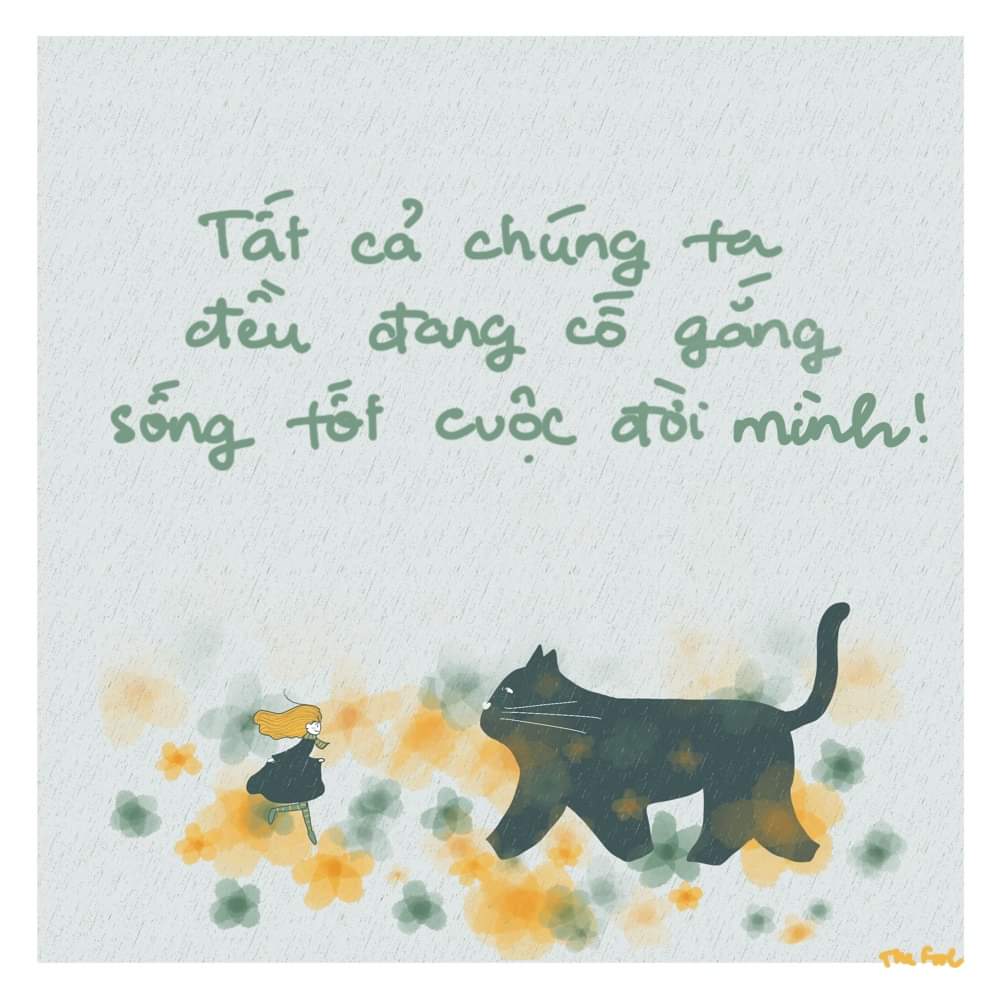 Tất cả chúng ta
đều đang cố gắng
sống tốt cuộc đời mình!
The Fool